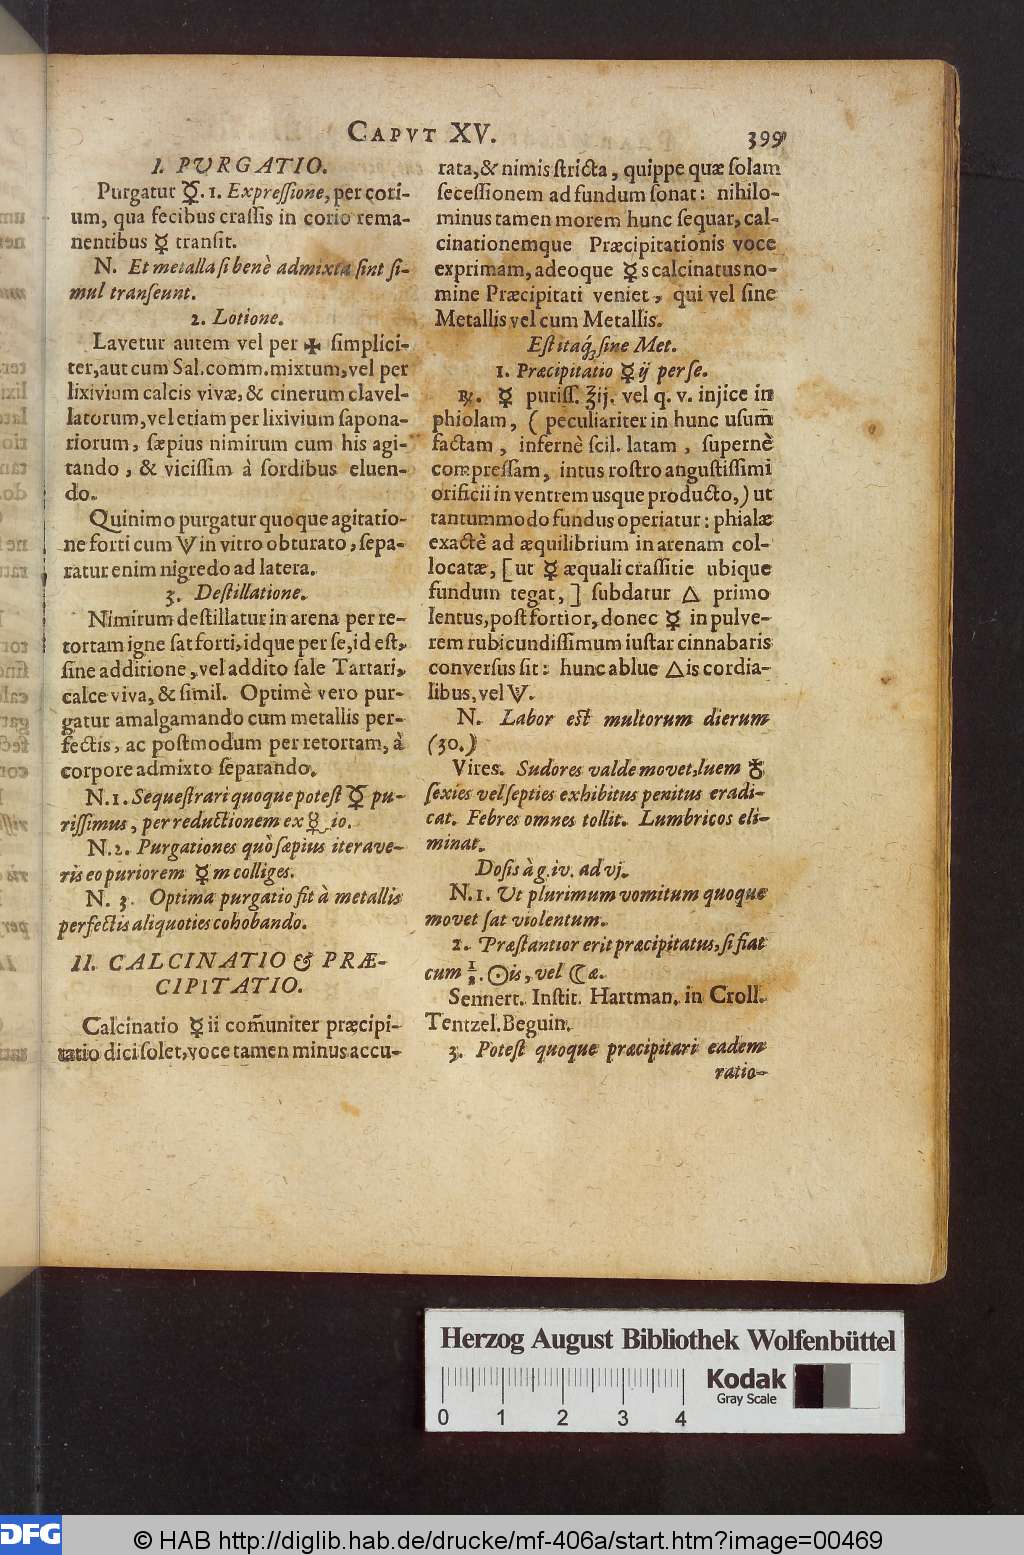 CAPVT XV. 399
I. PVRGATIO.
Purgatur ☿. 1. Expreſſione, per cori-
um, qua fecibus craſſis in corio rema-
nentibus ☿ tranſit.
N. Et metalla ſi benè admixta ſint ſi-
mul tranſeunt.
2. Lotione.
Lavetur autem vel per ✠ ſimplici-
ter, aut cum Sal. comm. mixtum, vel per
lixivium calcis vivæ, & cinerum clavel-
latorum, vel etiam per lixivium ſapona-
riorum, ſæpius nimirum cum his agi-
tando, & viciſſim à ſordibus eluen-
do.
Quinimo purgatur quoque agitatio-
ne forti cum 🜊 in vitro obturato, ſepa-
ratur enim nigredo ad latera.
3. Deſtillatione.
Nimirum deſtillatur in arena per re-
tortam igne ſat forti, idque per ſe, id eſt,
ſine additione, vel addito ſale Tartari,
calce viva, & ſimil. Optimè vero pur-
gatur amalgamando cum metallis per-
fectis, ac poſtmodum per retortam, à
corpore admixto ſeparando.
N. 1. Sequeſtrari quoque poteſt ☿ pu-
riſſimus, per reductionem ex io.
N. 2. Purgationes quò ſæpius iterave-
ris eo puriorem ☿m colliges.
N. 3. Optima purgatio fit à metallis
perfectis aliquoties cohobando.
II. CALCINATIO & PRÆ-
CIPITATIO.
Calcinatio ☿ii com̄uniter præcipi-
tatio dici ſolet, voce tamen minus accu-
rata, & nimis ſtricta, quippe quæ ſolam
ſeceſſionem ad fundum ſonat: nihilo-
minus tamen morem hunc ſequar, cal-
cinationemque Præcipitationis voce
exprimam, adeoque ☿s calcinatus no-
mine Præcipitati veniet, qui vel ſine
Metallis vel cum Metallis.
Eſt itaq́ꝫ ſine Met.
1. Præcipitatio ☿ij per ſe.
℞. ☿ puriſſ. ℥ij. vel q. v. injice in
phiolam, (peculiariter in hunc uſum̄
factam, infernè ſcil. latam, ſupernè
compreſſam, intus roſtro anguſtiſſimi
orificii in ventrem usque producto,) ut
tantummodo fundus operiatur: phialæ
exactè ad æquilibrium in arenam col-
locatæ, [ut ☿ æquali craſſitie ubique
fundum tegat,] ſubdatur △ primo
lentus, poſt fortior, donec ☿ in pulve-
rem rubicundiſſimum iuſtar cinnabaris
converſus ſit: hunc ablue △is cordia-
libus, vel 🜊.
N. Labor eſt multorum dierum
(30.)
Vires. Sudores valde movet, luem ♁
ſexies vel ſepties exhibitus penitus eradi-
cat. Febres omnes tollit. Lumbricos eli-
minat.
Doſis à g. iv. ad vj.
N. 1. Ut plurimum vomitum quoque
movet ſat violentum.
2. Præſtantior erit præcipitatus, ſi fiat
cum ½. ☉is, vel ☾æ.
Sennert. Inſtit. Hartman. in Croll.
Tentzel. Beguin.
3. Poteſt quoque præcipitari eadem
ratio-
Herzog August Bibliothek Wolfenbüttel
0 1 2 3 4
Kodak
Gray Scale
DFG
© HAB http://diglib.hab.de/drucke/mf-406a/start.htm?image=00469